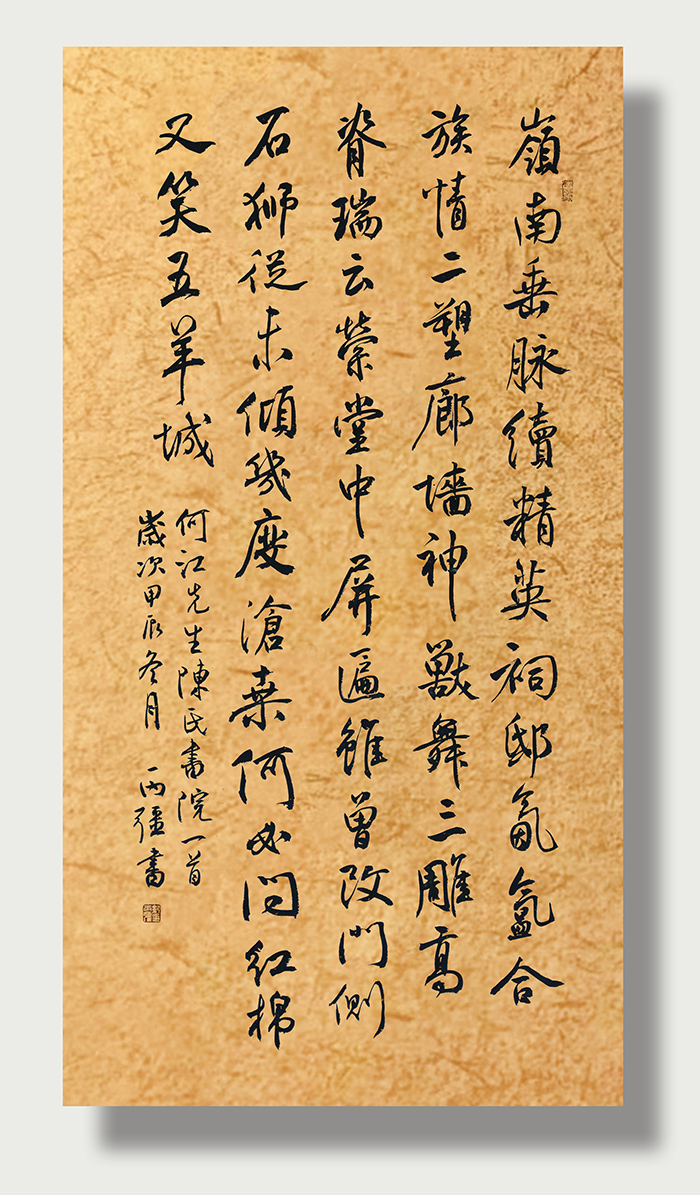 嶺南垂脉續精英祠邸氤氳合
族情二塑廊墻神獸舞三雕高
脊瑞云縈堂中屏匾雖曾改門側
石獅從未傾幾度滄桑何必問紅棉
又笑五羊城
何江先生陳氏書院一首
歲次甲辰冬月 丙疆書